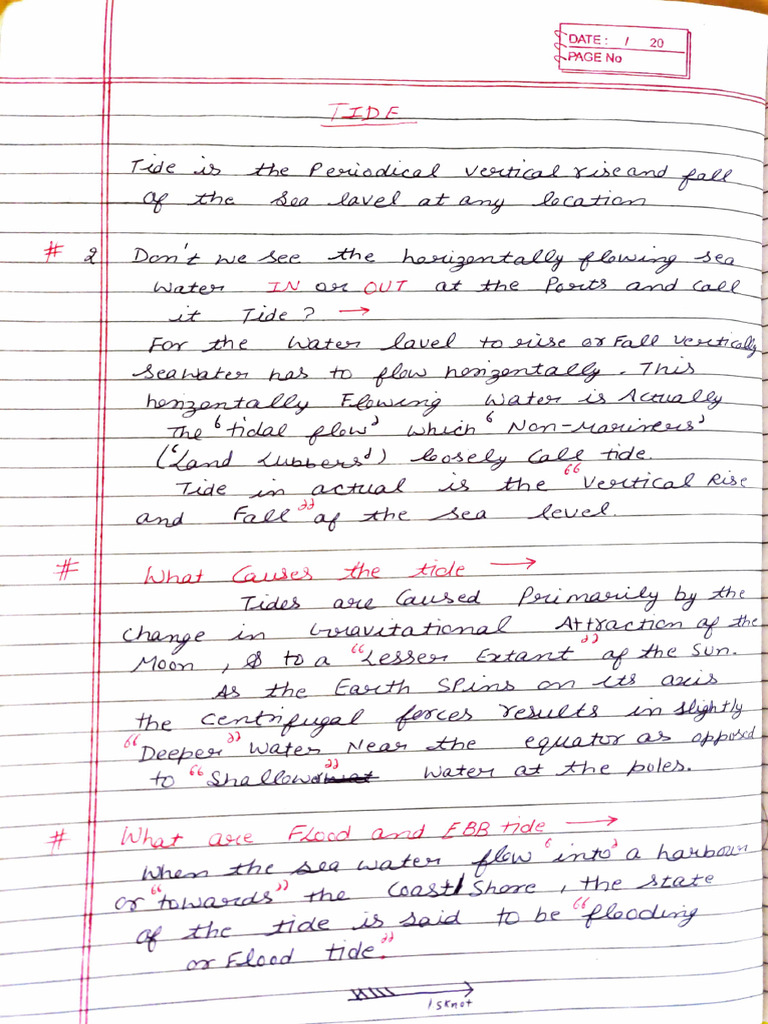 DATE: / 20
PAGE No
TIDE
Tide is the Periodical vertical rise and fall
of the Sea lavel at any location
# 2 Don't we see the horizentally flowing sea
Water IN or OUT at the Ports and call
it Tide? →
For the Water lavel to riise or Fall vertically
Seawater has to flow horizentally. This
horizentally Flowing Water is Actually
The "tidal flow" which 'Non-Mariners'
('Land Lubbers') loosely call tide.
Tide in actual is the "Vertical Rise
and Fall" of the sea level.
# What Causes the tide →
Tides are Caused Primarily by the
change in Gravitational Attraction of the
Moon, & to a "Lesser Extant" of the Sun.
As the Earth Spins on its axis
the centrifugal forces results in slightly
"Deeper" Water Near the equator as opposed
to "Shallow" Water at the poles.
# What are Flood and EBB tide →
When the sea water flow 'into' a harbour
or "towards" the Coast/Shore, the state
of the tide is said to be "flooding
or Flood tide."